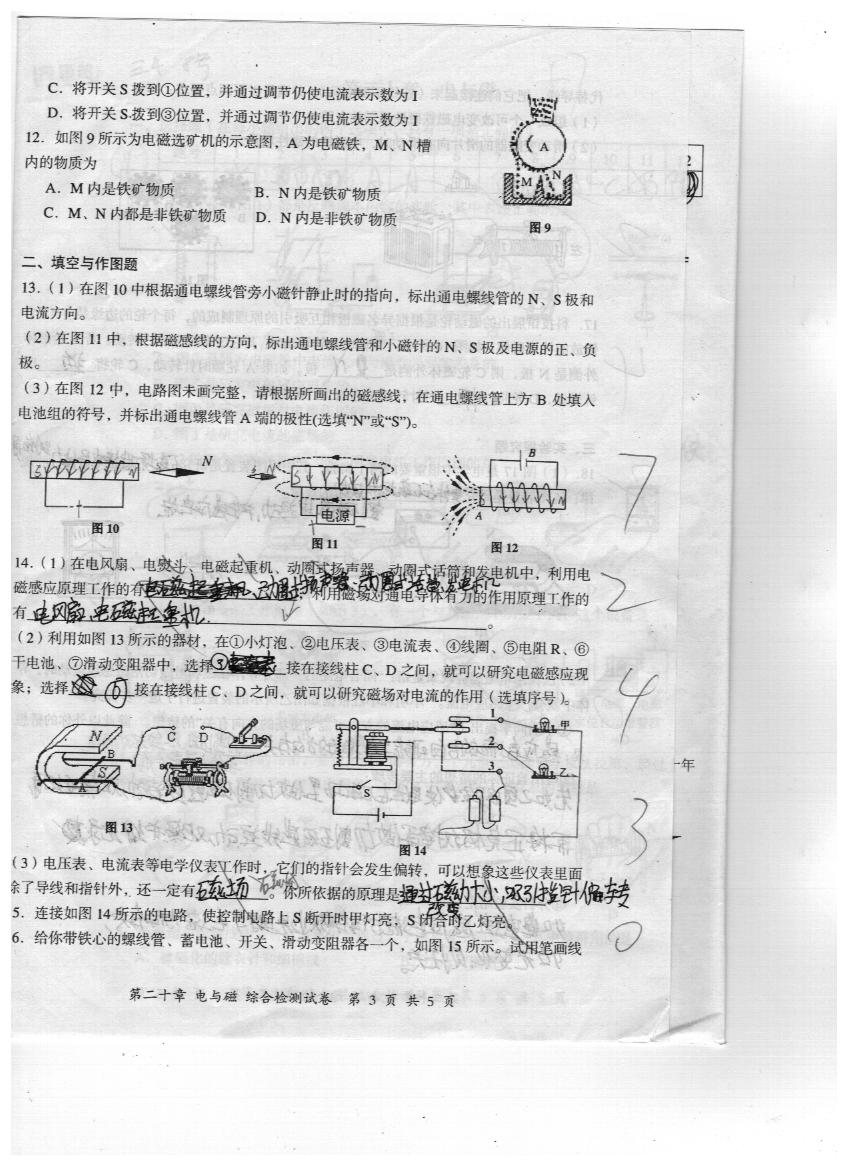 C．将开关 S 拨到①位置，并通过调节仍使电流表示数为 I
D．将开关 S 拨到③位置，并通过调节仍使电流表示数为 I
12．如图 9 所示为电磁选矿机的示意图，A 为电磁铁，M、N 槽
内的物质为
A．M 内是铁矿物质 B．N 内是铁矿物质
C．M、N 内都是非铁矿物质 D．N 内是非铁矿物质
A
M N
图 9
二、填空与作图题
13.（1）在图 10 中根据通电螺线管旁小磁针静止时的指向，标出通电螺线管的 N、S 极和
电流方向。
（2）在图 11 中，根据磁感线的方向，标出通电螺线管和小磁针的 N、S 极及电源的正、负
极。
（3）在图 12 中，电路图未画完整，请根据所画出的磁感线，在通电螺线管上方 B 处填入
电池组的符号，并标出通电螺线管 A 端的极性(选填“N”或“S”)。
S N N S N S N B
电源 A N
7
图 10 图 11 图 12
14.（1）在电风扇、电熨斗、电磁起重机、动圈式扬声器、动圈式话筒和发电机中，利用电
磁感应原理工作的有 动圈式话筒 发电机 利用磁场对通电导体有力的作用原理工作的
2
有 电风扇 电磁起重机 。
（2）利用如图 13 所示的器材，在①小灯泡、②电压表、③电流表、④线圈、⑤电阻 R、⑥
干电池、⑦滑动变阻器中，选择 ③ 接在接线柱 C、D 之间，就可以研究电磁感应现
象；选择 ⑥ 接在接线柱 C、D 之间，就可以研究磁场对电流的作用（选填序号）。
4
N C D B S A
1 甲
2
3 乙
S
年
图 13 图 14
3
（3）电压表、电流表等电学仪表工作时，它们的指针会发生偏转，可以想象这些仪表里面
除了导线和指针外，还一定有 磁场 。你所依据的原理是 通过改变磁力大小,吸引指针偏转
5．连接如图 14 所示的电路，使控制电路上 S 断开时甲灯亮；S 闭合时乙灯亮。
0
6．给你带铁心的螺线管、蓄电池、开关、滑动变阻器各一个，如图 15 所示。试用笔画线
第二十章 电与磁 综合检测试卷 第 3 页 共 5 页